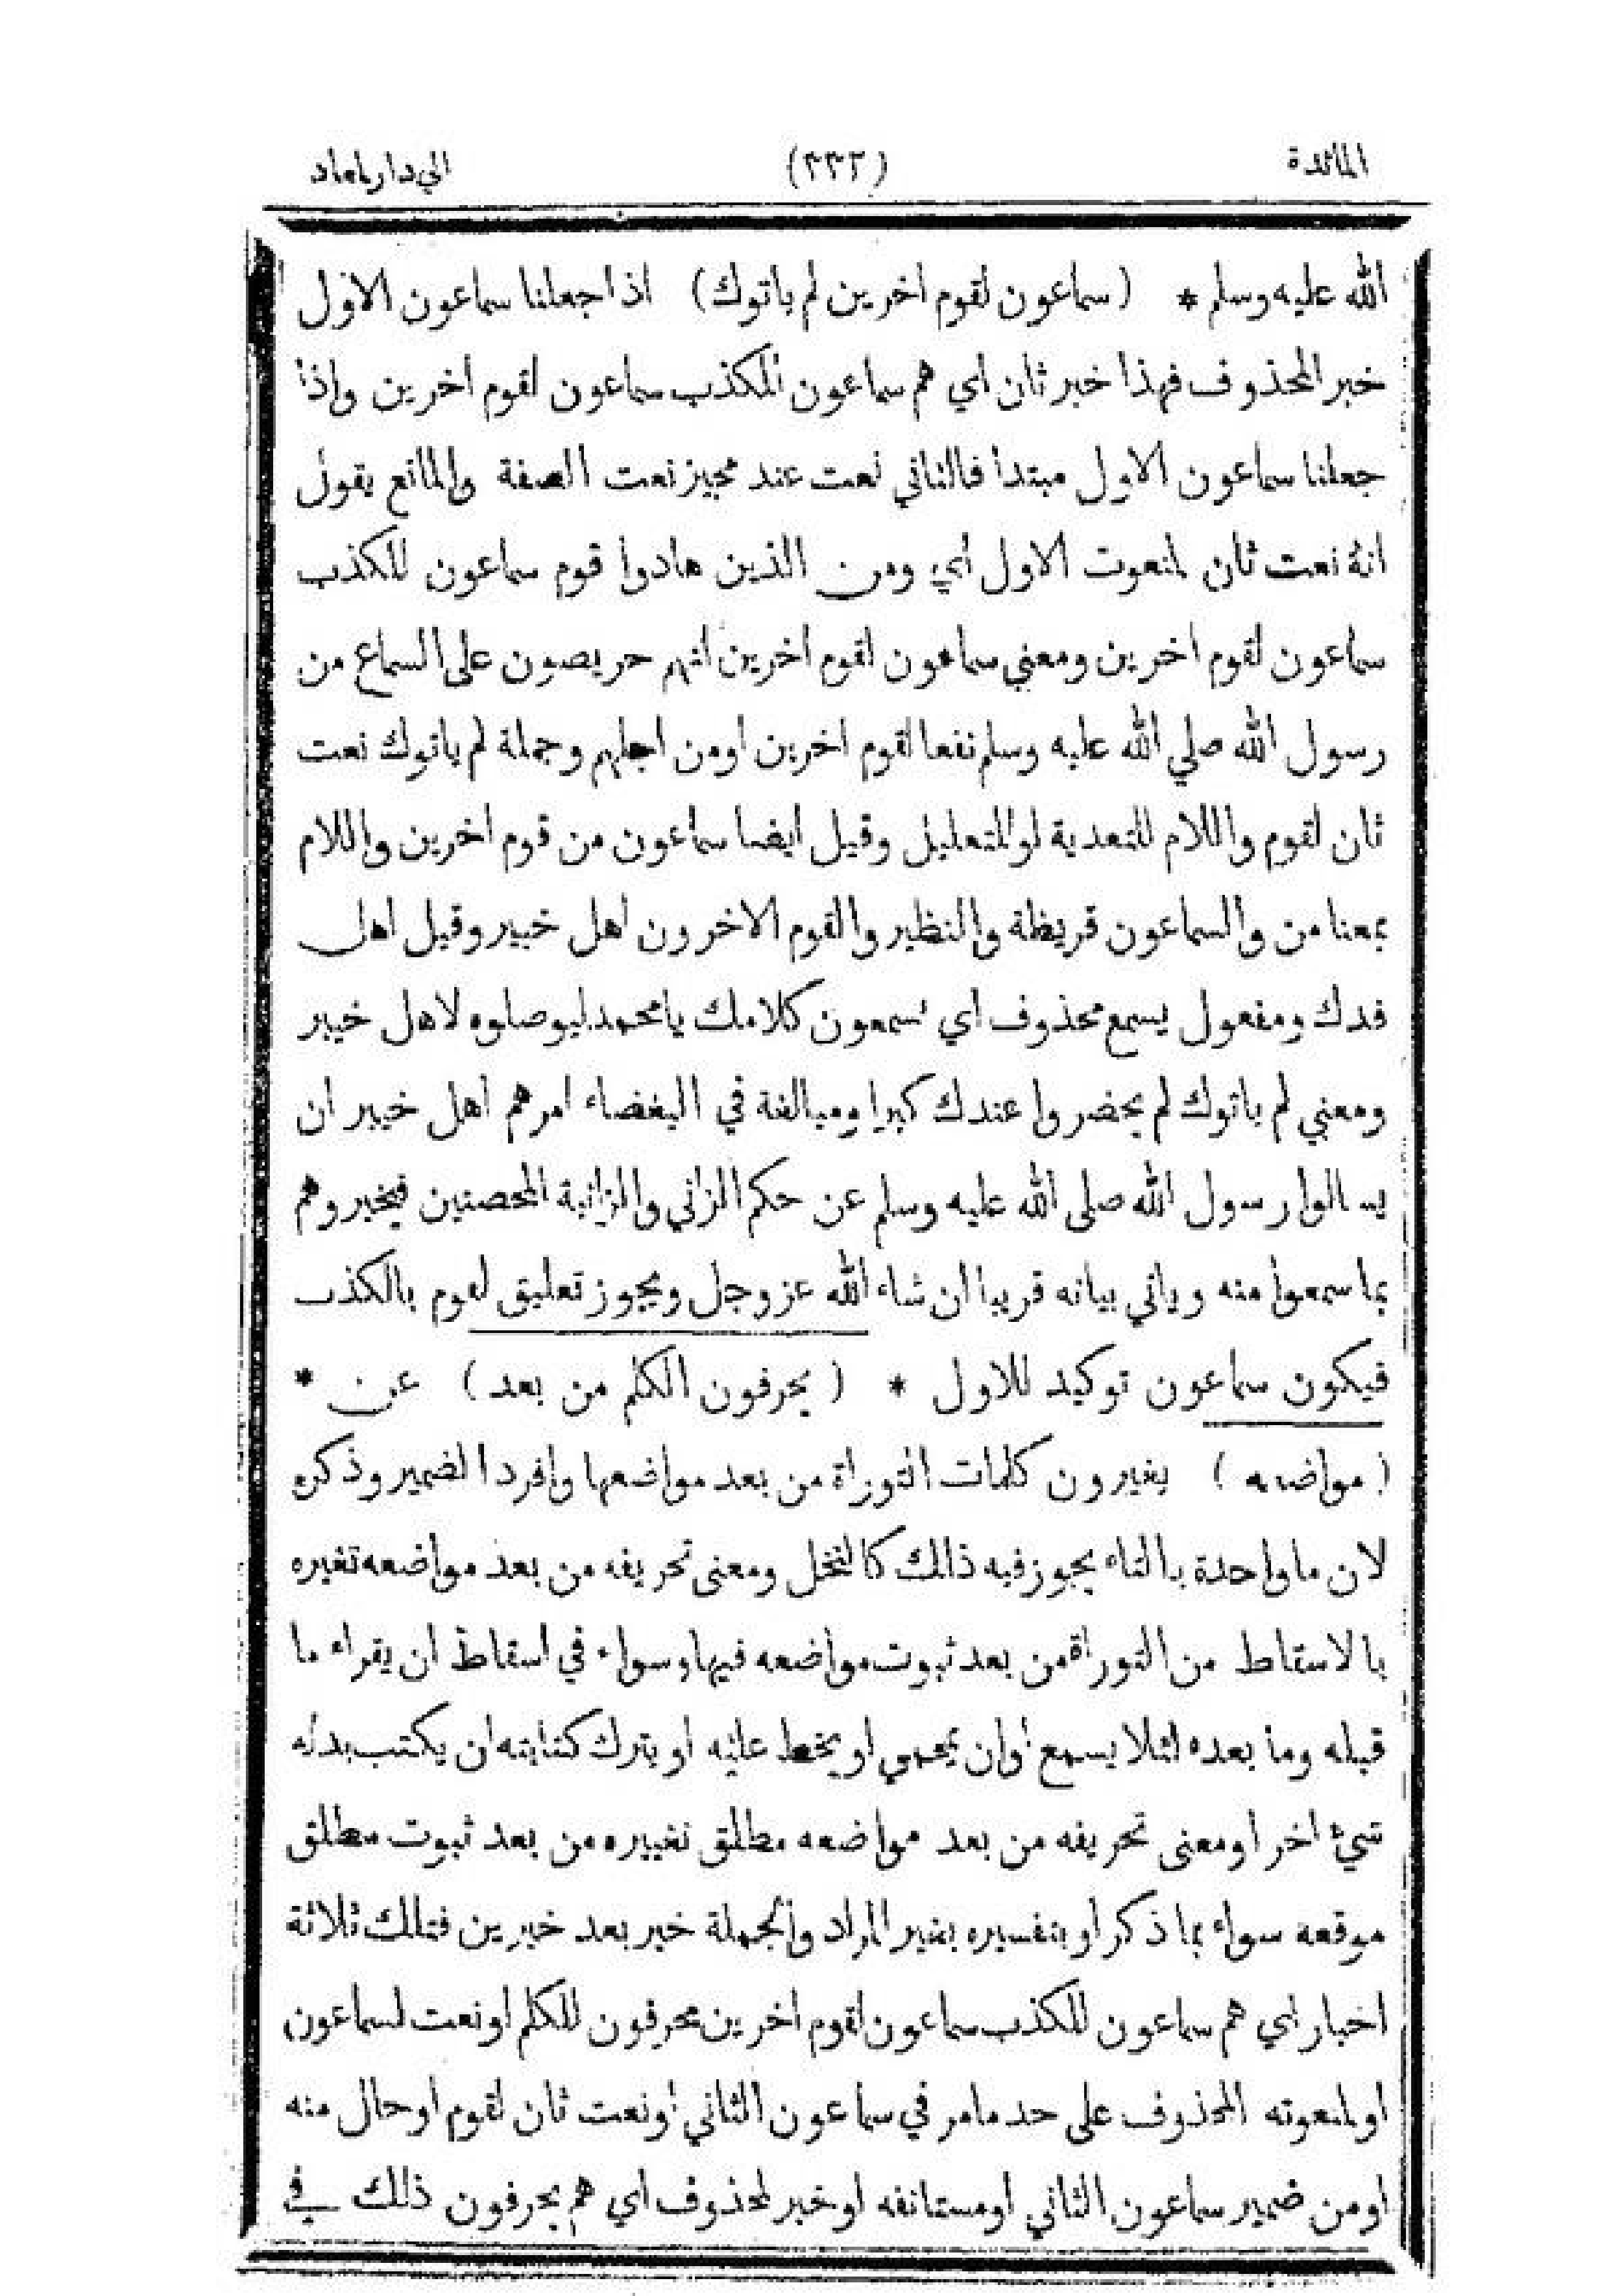 المائدة (٣٣٢) الي دار
الله عليه وسلم * (سماعون لقوم اخرين لم ياتوك) اذا جعلنا سماعون الاول
خبر المحذوف فهذا خبر ثان اي هم سماعون للكذب سماعون لقوم اخرين واذا
جعلنا سماعون الاول مبتدا فالثاني نعت عند مجيز نعت الصفة والمانع يقول
انه نعت ثان لمنعوت الاول اي ومن الذين هادوا قوم سماعون للكذب
سماعون لقوم اخرين ومعني سماعون لقوم اخرين انهم حريصون على السماع من
رسول الله صلي الله عليه وسلم نفعا لقوم اخرين او من اجلهم وجملة لم ياتوك نعت
ثان لقوم واللام للتعدية او للتعليل وقيل ايضا سماعون من قوم اخرين واللام
بمعنا من والسماعون قريظة والنظير والقوم الاخرون اهل خيبر وقيل اهل
فدك ومفعول يسمع محذوف اي يسمعون كلامك يا محمد ليوصلوه لاهل خيبر
ومعني لم ياتوك لم يحضروا عندك كبرا ومبالغة في البغضاء امرهم اهل خيبر ان
يسالوا رسول الله صلى الله عليه وسلم عن حكم الزاني والزانية المحصنين فيخبروهم
بما سمعوا منه وياتي بيانه قريبا ان شاء الله عز وجل ويجوز تعليق لقوم بالكذب
فيكون سماعون توكيد للاول * (يحرفون الكلم من بعد) عن *
(مواضعه) يغيرون كلمات التوراة من بعد مواضعها وافرد الضمير وذكره
لان ما واحدة بالتاء يجوز فيه ذالك كالنخل ومعنى تحريفه من بعد مواضعه تغيره
بالاسقاط من التوراة من بعد ثبوت مواضعه فيها وسواء في اسقاط ان يقراء ما
قبله وما بعده لئلا يسمع او ان يمحي او يخط عليه او يترك كتابته ان يكتب بدله
شيء اخر او معنى تحريفه من بعد مواضعه مطلق تغييره من بعد ثبوت مطلق
موقعه سواء بما ذكر او بتفسيره بغير المراد والجملة خبر بعد خبرين فتلك ثلاثة
اخبار اي هم سماعون للكذب سماعون لقوم اخرين محرفون للكلم او نعت لسماعون
او لمنعوته المحذوف على حد ما مر في سماعون الثاني او نعت ثان لقوم او حال منه
او من ضمير سماعون الثاني او مستانفه او خبر لمحذوف اي هم يحرفون ذلك في